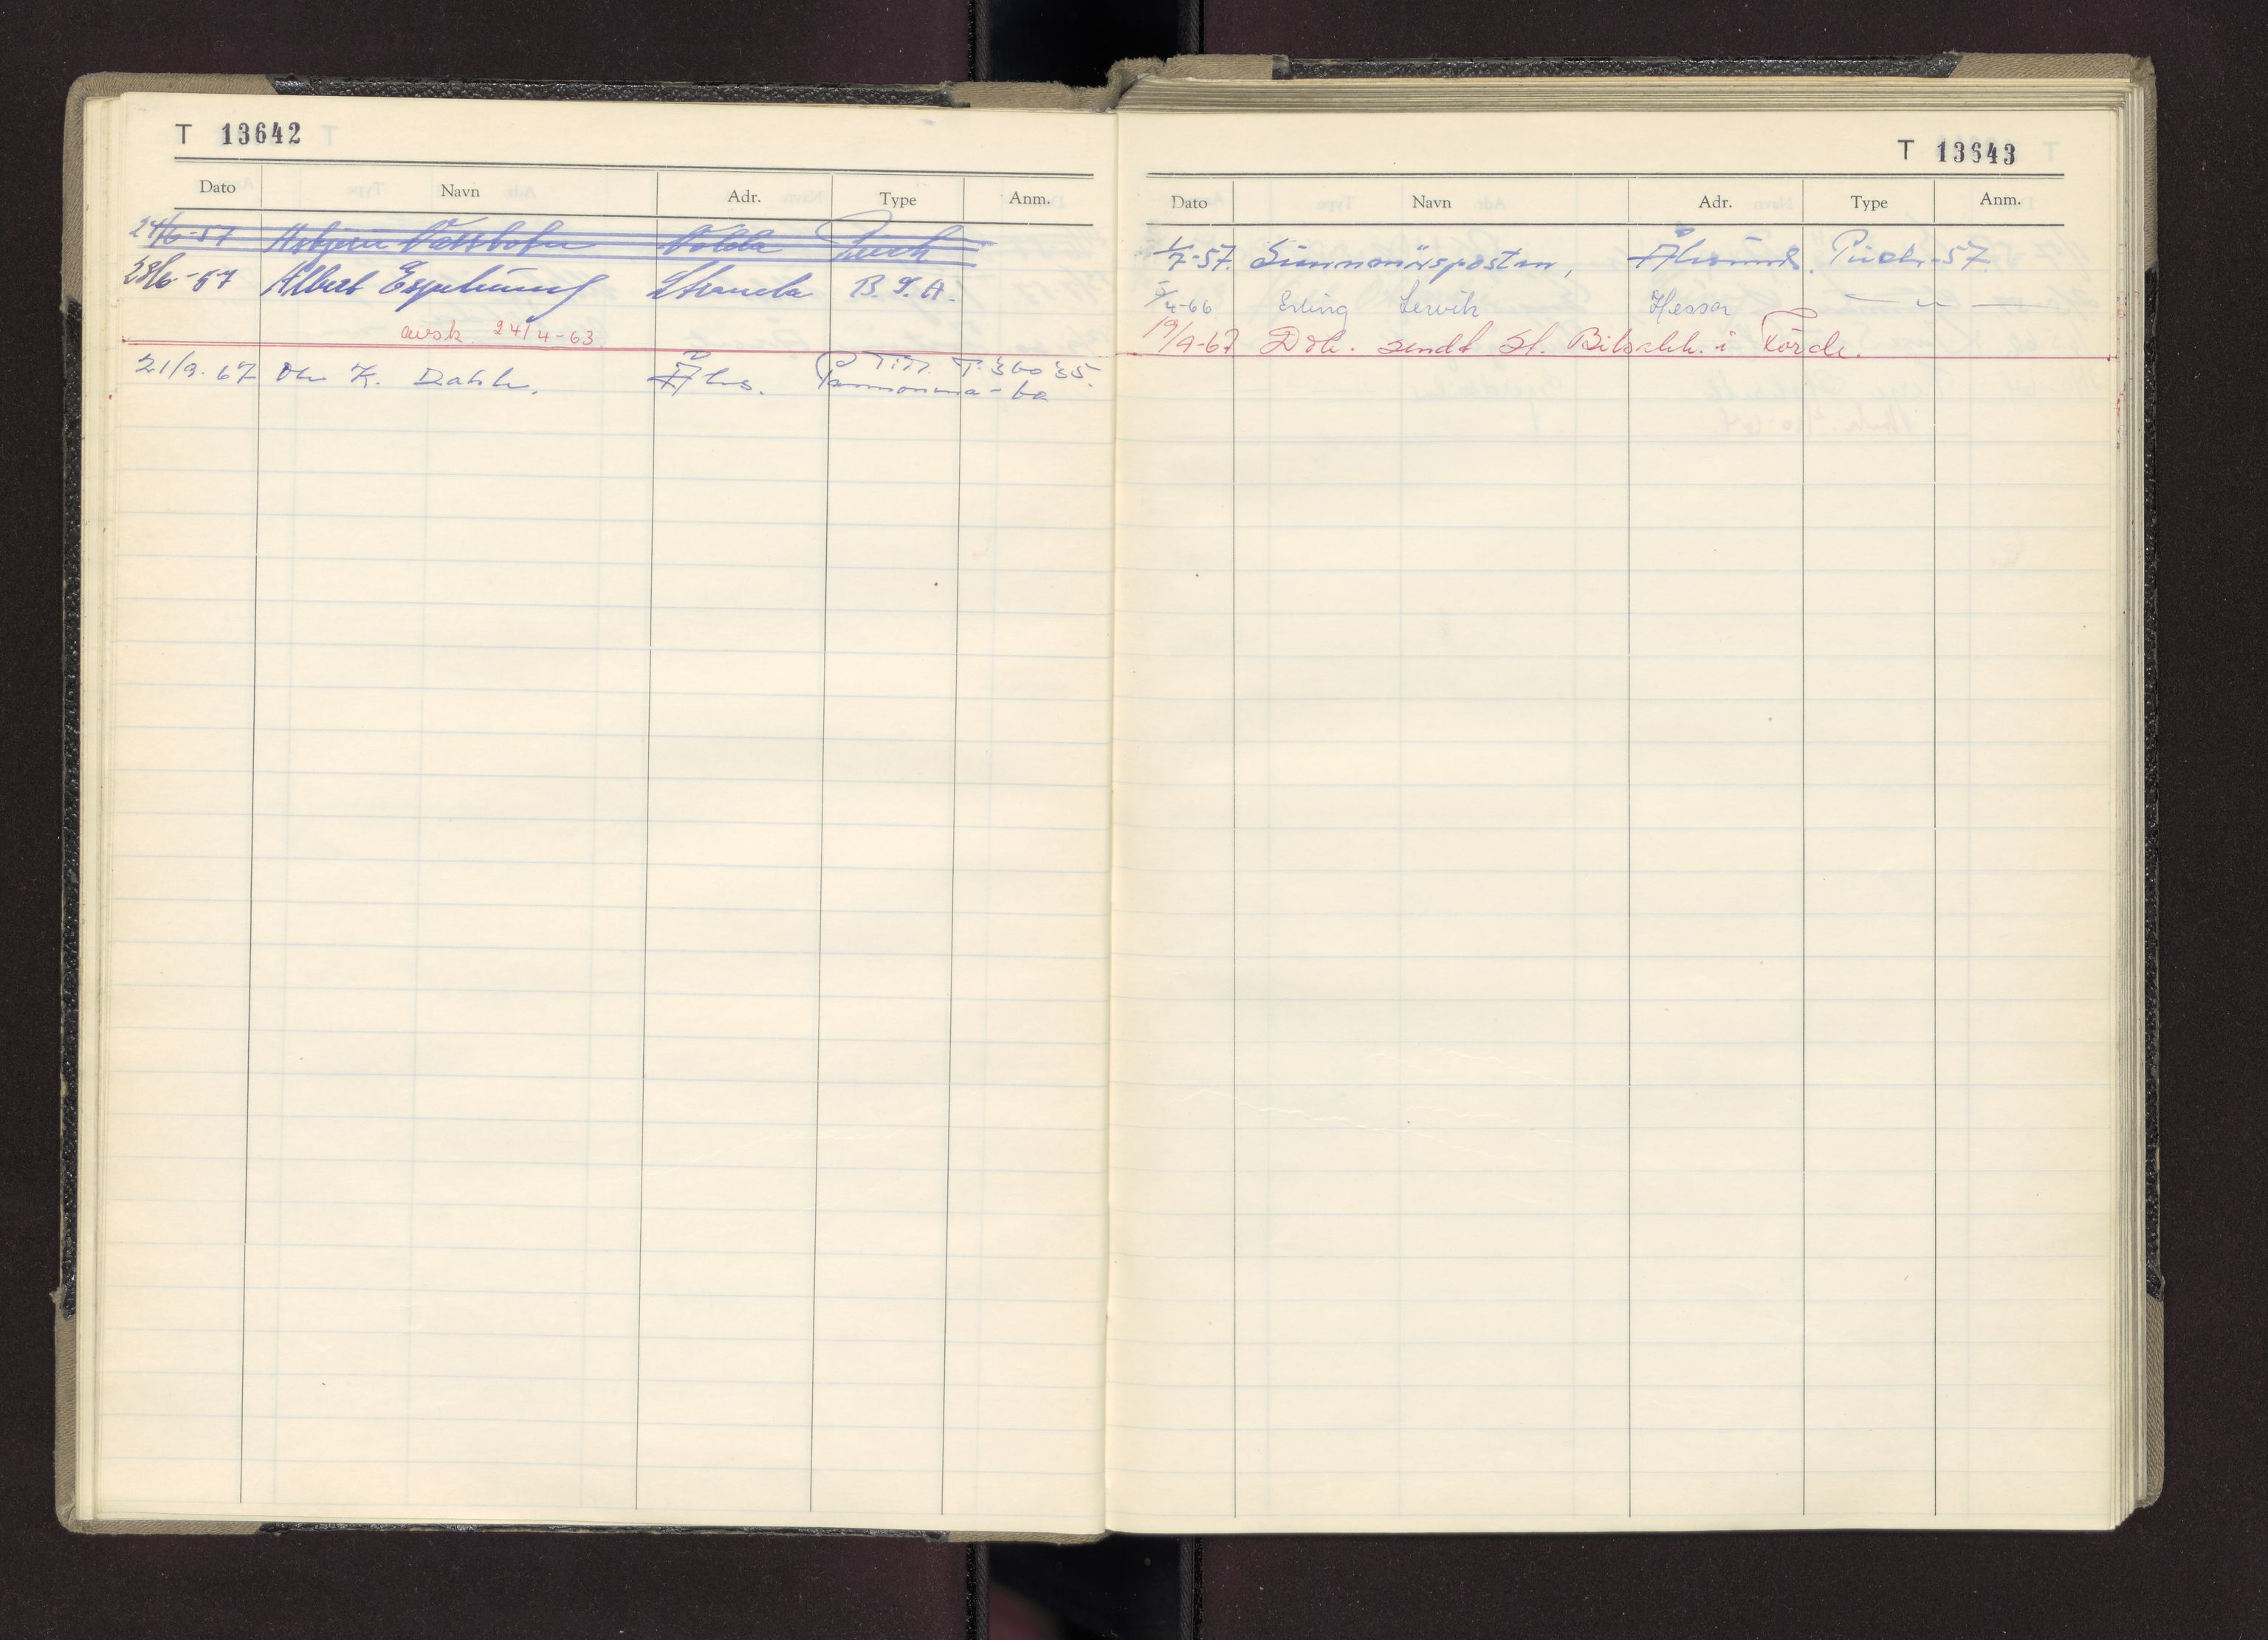 T 13642
Dato Navn Adr. Type Anm.
24/6-57 Asbjørn Volda Puch
28/6-57 Albert Espehaug Stranda B.S.A.
avsk. 24/4-63
21/9.67 Ole K. Dahle. Åles. P. Titt. T. 360 35.
Pannonia-60
T 13643
Dato Navn Adr. Type Anm.
1/7-57. Sunnmørsposten, Ålesund. Puch-57
5/4-66 Erling Lervik Hessa — " —
19/9-67 Dok. sendt St. Bilsakk. i Førde.